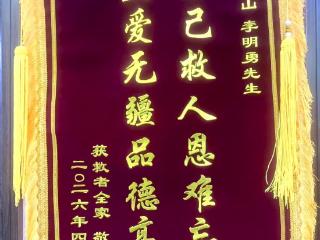 山 李明勇先生
己救人恩难忘
爱无疆品德高
获救者全家 敬
二〇二六年四